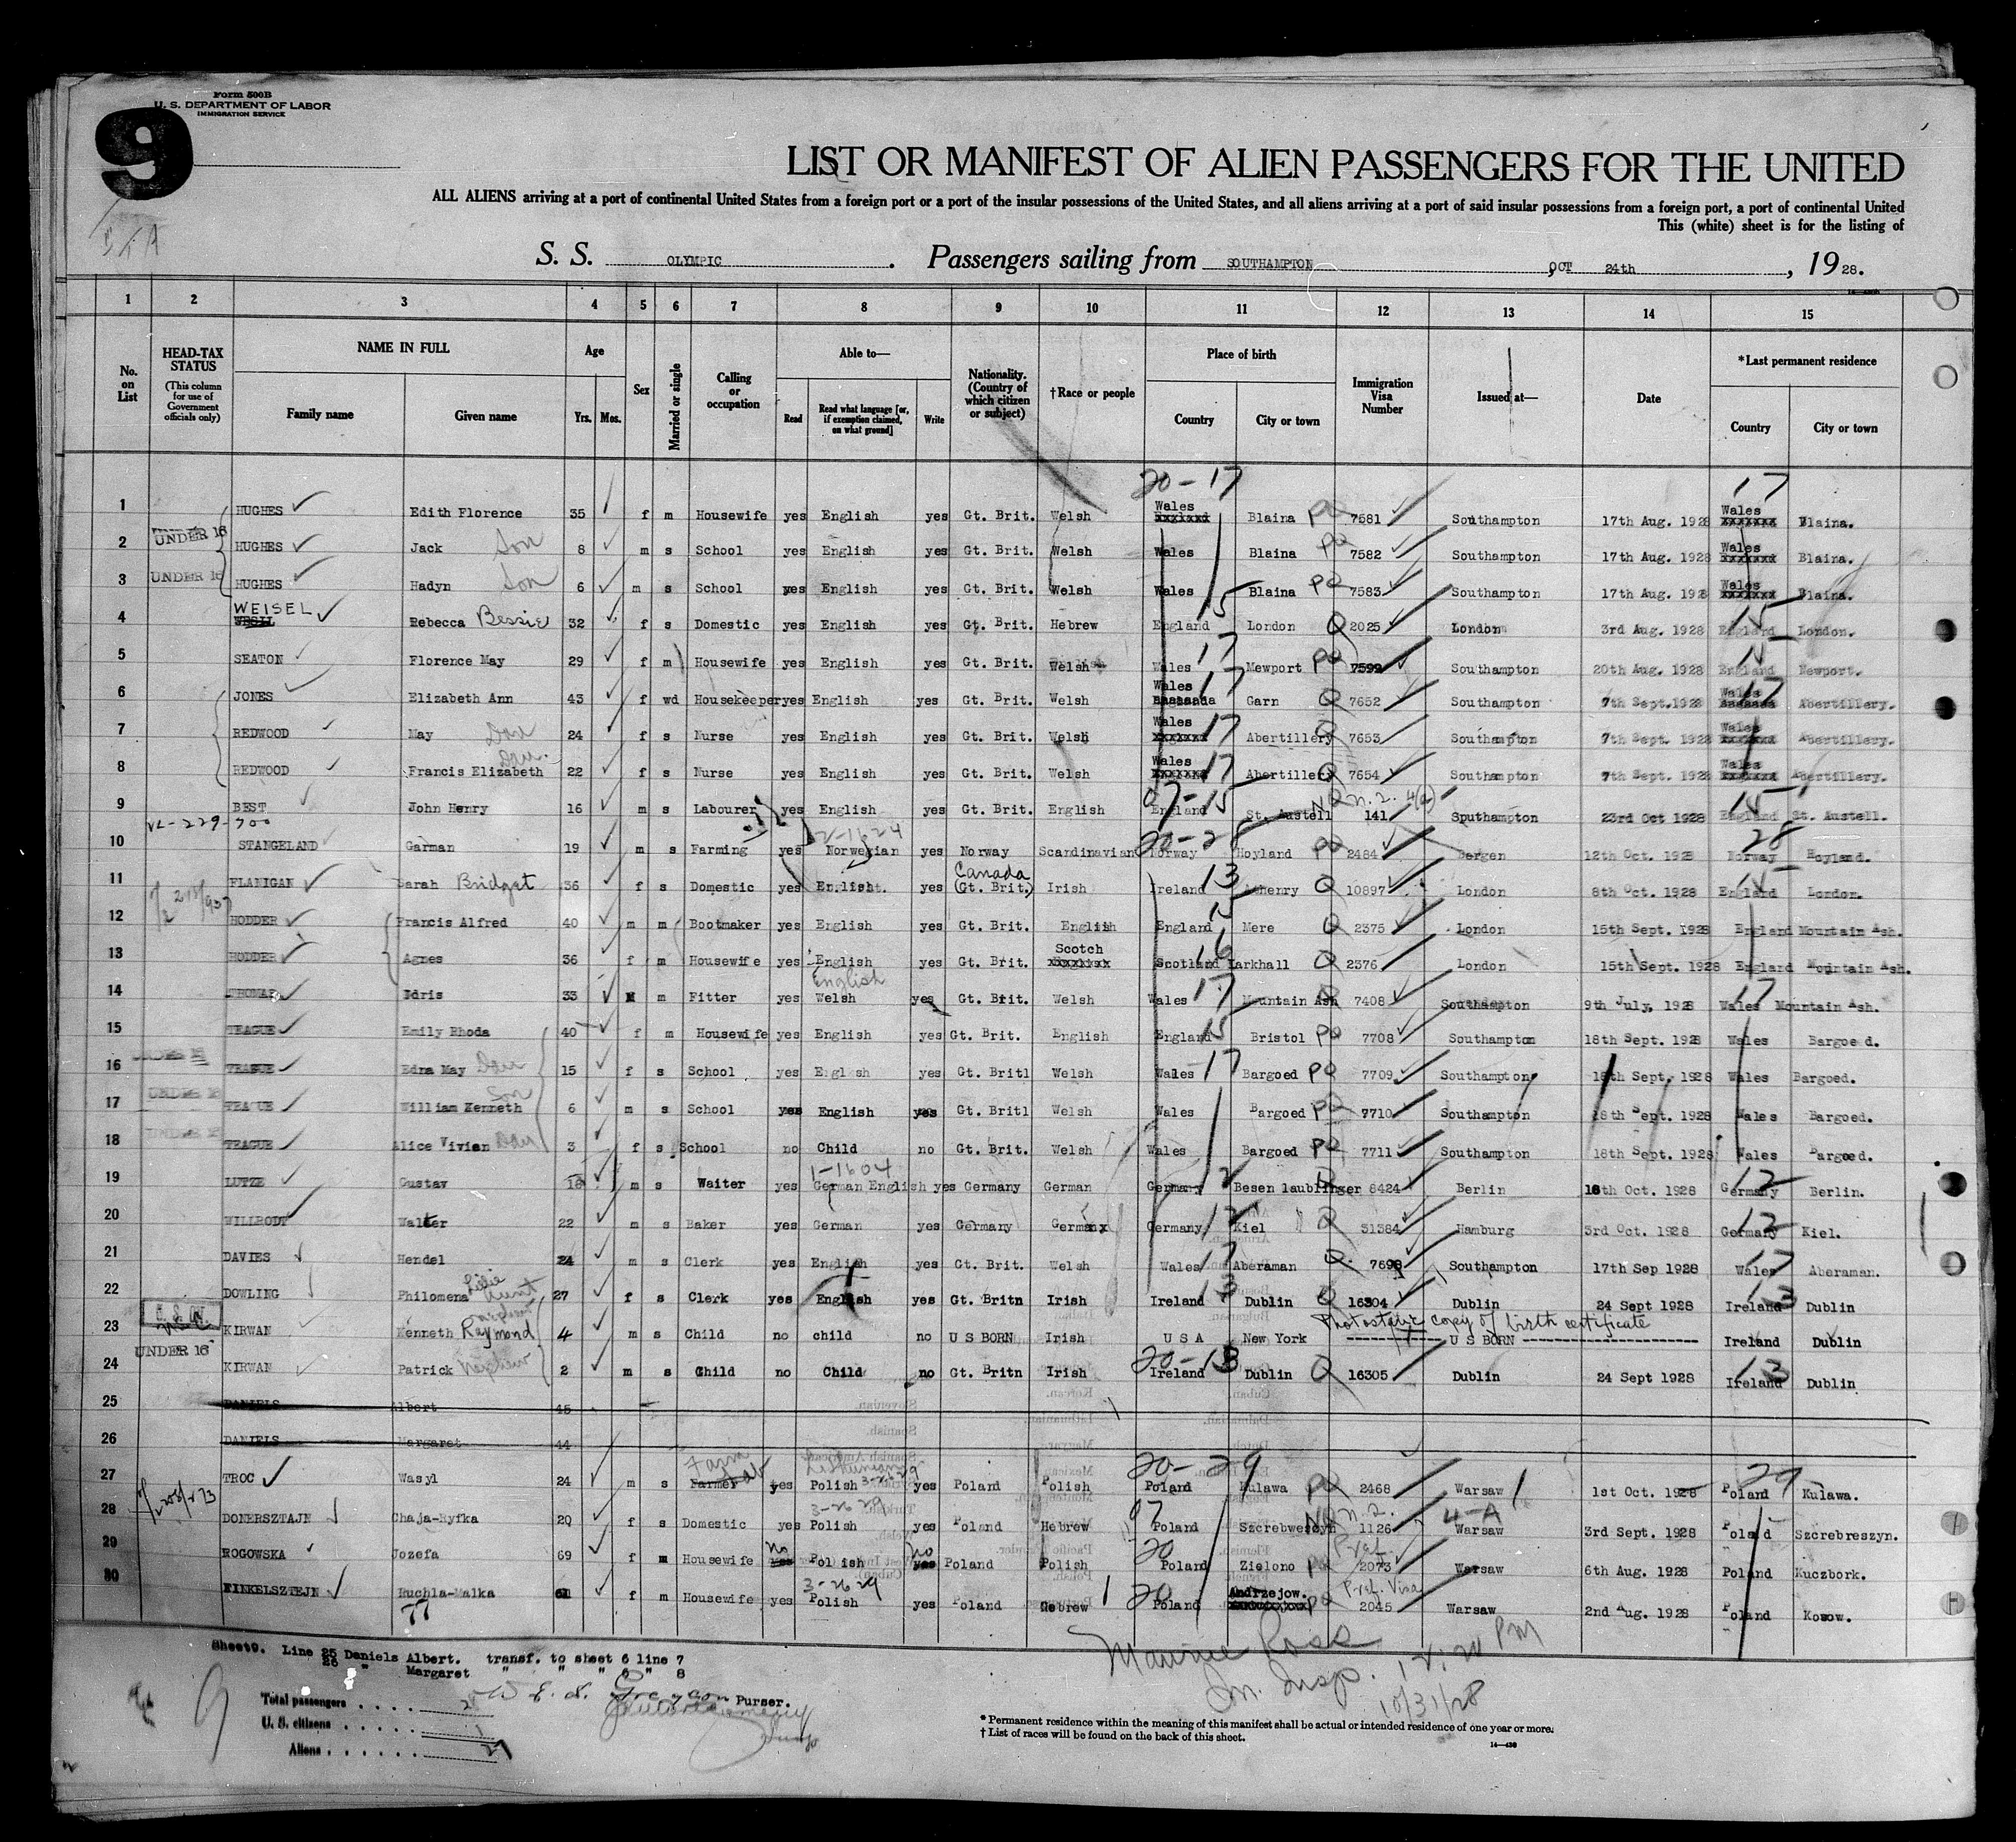 Form 500B
U. S. DEPARTMENT OF LABOR
IMMIGRATION SERVICE
9
LIST OR MANIFEST OF ALIEN PASSENGERS FOR THE UNITED
ALL ALIENS arriving at a port of continental United States from a foreign port or a port of the insular possessions of the United States, and all aliens arriving at a port of said insular possessions from a foreign port, a port of continental United
This (white) sheet is for the listing of
S. S. OLYMPIC. Passengers sailing from SOUTHAMPTON OCT 24th, 1928.
1 2 3 4 5 6 7 8 9 10 11 12 13 14 15
No. on List
HEAD-TAX STATUS (This column for use of Government officials only)
NAME IN FULL Family name Given name
Age Yrs. Mos.
Sex
Married or single
Calling or occupation
Able to— Read Read what language [or, if exemption claimed, on what ground] Write
Nationality. (Country of which citizen or subject)
†Race or people
Place of birth Country City or town
Immigration Visa Number
Issued at—
Date
*Last permanent residence Country City or town
20-17 17
1 HUGHES Edith Florence 35 f m Housewife yes English yes Gt. Brit. Welsh Wales Blaina PQ 7581 Southampton 17th Aug. 1928 Wales Blaina.
2 UNDER 16 HUGHES Jack Son 8 m s School yes English yes Gt. Brit. Welsh Wales Blaina PQ 7582 Southampton 17th Aug. 1928 Wales Blaina.
3 UNDER 16 HUGHES Hadyn Son 6 m s School yes English yes Gt. Brit. Welsh Wales Blaina PQ 7583 Southampton 17th Aug. 1928 Wales Blaina.
4 WEISEL Rebecca Bessie 32 f s Domestic yes English yes Gt. Brit. Hebrew England 15 London Q 2025 London 3rd Aug. 1928 England 15 London.
5 SEATON Florence May 29 f m Housewife yes English yes Gt. Brit. Welsh Wales 17 Newport PQ 7599 Southampton 20th Aug. 1928 England 15 Newport.
6 JONES Elizabeth Ann 43 f wd Housekeeper yes English yes Gt. Brit. Welsh Wales 17 Garn Q 7652 Southampton 7th Sept. 1928 Wales 17 Abertillery.
7 REDWOOD May Dau 24 f s Nurse yes English yes Gt. Brit. Welsh Wales 17 Abertillery Q 7653 Southampton 7th Sept. 1928 Wales Abertillery.
8 REDWOOD Francis Elizabeth Dau. 22 f s Nurse yes English yes Gt. Brit. Welsh Wales 17 Abertillery Q 7654 Southampton 7th Sept. 1928 Wales Abertillery.
9 BEST John Henry 16 m s Labourer yes English yes Gt. Brit. English England 07-15 St. Austell NQ n.2. 4(a) 141 Southampton 23rd Oct 1928 England 15 St. Austell.
10 STANGELAND Garman 19 m s Farming yes Norwegian yes Norway Scandinavian Norway 20-28 Hoyland PQ 2484 Bergen 12th Oct. 1928 Norway 28 Hoyland.
11 FLANIGAN Sarah Bridget 36 f s Domestic yes English. yes Canada (Gt. Brit.) Irish Ireland 13 Athenry Q 10897 London 8th Oct. 1928 England 15 London.
12 HODDER Francis Alfred 40 m m Bootmaker yes English yes Gt. Brit. English England 15 Mere Q 2375 London 15th Sept. 1928 England Mountain Ash.
13 HODDER Agnes 36 f m Housewife yes English yes Gt. Brit. Scotch Scotland 16 Larkhall Q 2376 London 15th Sept. 1928 England Mountain Ash.
14 THOMAS Idris 33 M m Fitter yes Welsh English yes Gt. Brit. Welsh Wales 17 Mountain Ash Q 7408 Southampton 9th July, 1928 Wales 17 Mountain Ash.
15 TEAGUE Emily Rhoda 40 f m Housewife yes English yes Gt. Brit. English England 15 Bristol PQ 7708 Southampton 18th Sept. 1928 Wales Bargoed.
16 UNDER 16 TEAGUE Edna May Dau 15 f s School yes English yes Gt. Britl Welsh Wales 17 Bargoed PQ 7709 Southampton 18th Sept. 1928 Wales Bargoed.
17 UNDER 16 TEAGUE William Kenneth Son 6 m s School yes English yes Gt. Britl Welsh Wales Bargoed PQ 7710 Southampton 18th Sept. 1928 Wales Bargoed.
18 UNDER 16 TEAGUE Alice Vivian Dau 3 f s School no Child no Gt. Brit. Welsh Wales Bargoed PQ 7711 Southampton 18th Sept. 1928 Wales Bargoed.
19 LUTZE Gustav 18 m s Waiter yes German English yes Germany German Germany 12 Besen laublinger Q 8424 Berlin 18th Oct. 1928 Germany 12 Berlin.
20 WILLRODT Walter 22 m s Baker yes German yes Germany German Germany 12 Kiel Q 31384 Hamburg 3rd Oct. 1928 Germany 12 Kiel.
21 DAVIES Hendel 24 m s Clerk yes English yes Gt. Brit. Welsh Wales 17 Aberaman Q. 7698 Southampton 17th Sep 1928 Wales 17 Aberaman.
22 DOWLING Philomena Aunt 27 f s Clerk yes English yes Gt. Britn Irish Ireland 13 Dublin Q 16304 Dublin 24 Sept 1928 Ireland 13 Dublin
Photostatic copy of birth certificate
23 KIRWAN Kenneth Raymond 4 m s Child no child no U S BORN Irish U S A New York U S BORN Ireland Dublin
24 UNDER 16 KIRWAN Patrick Nephew 2 m s Child no Child no Gt. Britn Irish Ireland 20-13 Dublin Q 16305 Dublin 24 Sept 1928 Ireland 13 Dublin
25 DANIELS Albert 45
26 DANIELS Margaret 44
27 TROC Wasyl 24 m s Farmer Farm Lab yes Polish yes Poland Polish Poland 20-29 Kulawa PQ 2468 Warsaw 1st Oct. 1928 Poland 29 Kulawa.
28 DONERSZTAJN Chaja-Ryfka 20 f s Domestic yes Polish yes Poland Hebrew Poland 07 Szcrebweszyn NQ n.2. 1126 Warsaw 4-A 3rd Sept. 1928 Poland Szcrebreszyn.
29 ROGOWSKA Jozefa 69 f m Housewife no Polish no Poland Polish Poland 20 Zielono PQ Pref. 2073 Warsaw 6th Aug. 1928 Poland Kuczbork.
30 FINKELSZTEJN Ruchla-Malka f m Housewife yes Polish 3-26 29 yes Poland Hebrew Poland 20 Andrzejow. PQ Pref. Visa 2045 Warsaw 2nd Aug. 1928 Poland Kosow.
Sheet9. Line 25 Daniels Albert. transf. to sheet 6 line 7
26 " Margaret " " " 6 " 8
Purser.
Total passengers
U. S. citizens 1
Aliens 27
Maurice Ross
Im. Insp.
10/31/28
* Permanent residence within the meaning of this manifest shall be actual or intended residence of one year or more.
† List of races will be found on the back of this sheet.